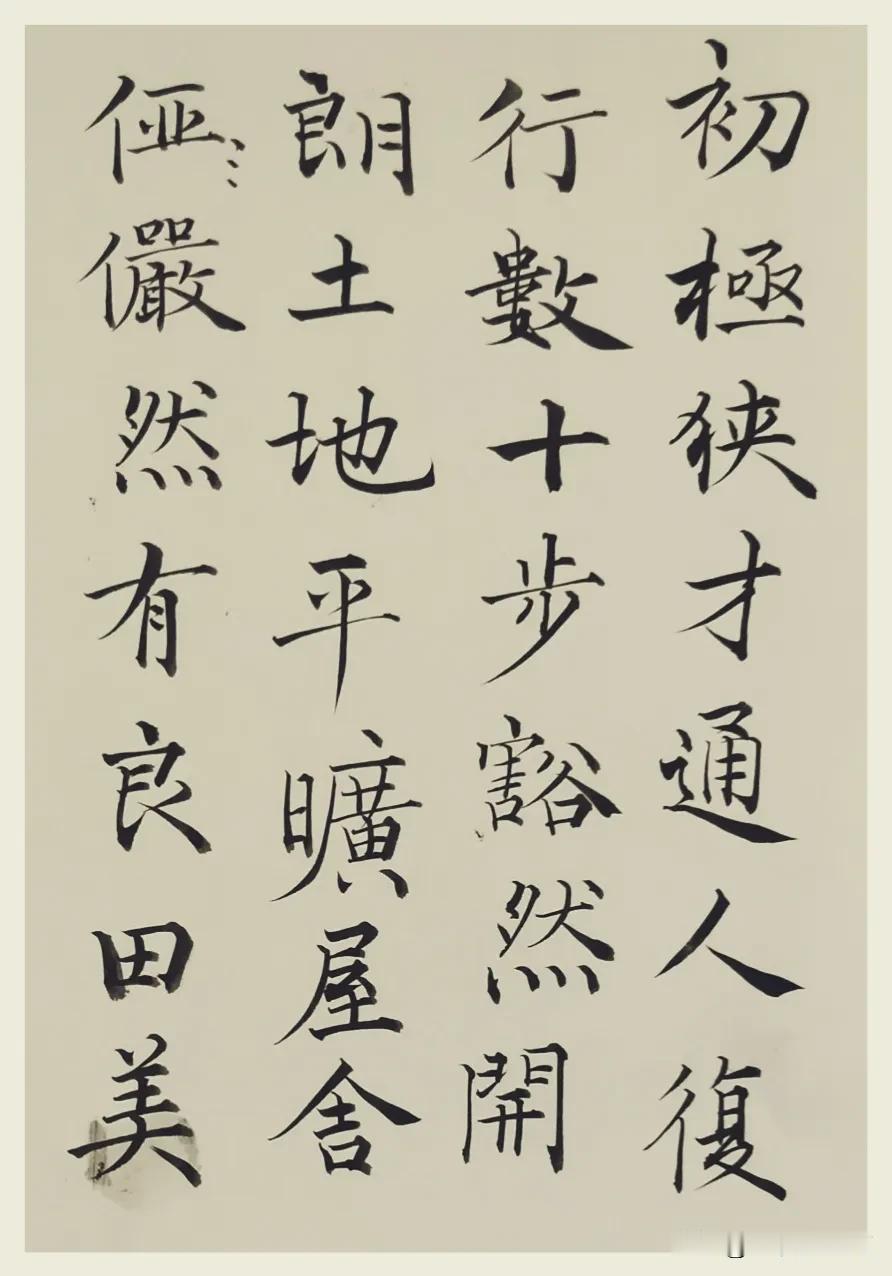 初極狭才通人復
行數十步豁然開
朗土地平曠屋舍
俹〻儼然有良田美